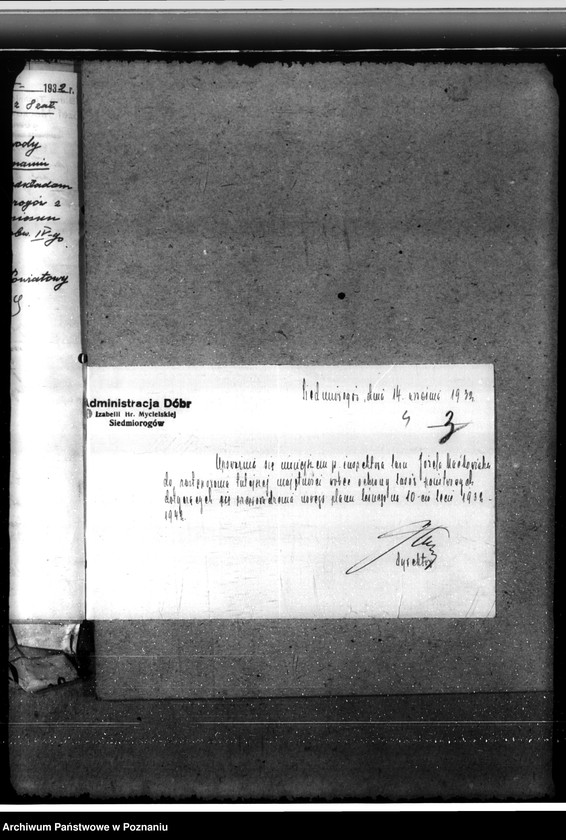 1932 r.
z Seat
wody
nakładam
rogów z
IV-go
Powiatowy
Administracja Dóbr
Izabelli Hr. Mycielskiej
Siedmiorogów
Siedmiorogów, dnia 14. września 1932
3
Upoważnia się niniejszem p. inspektora lasu Józefa
do zastępowania tutejszej majętności wobec ochrony lasów
dotyczących się przeprowadzenia nowego planu leśnego na 10-cio lecie 1932 -
1942.
dyrektor
Archiwum Państwowe w Poznaniu